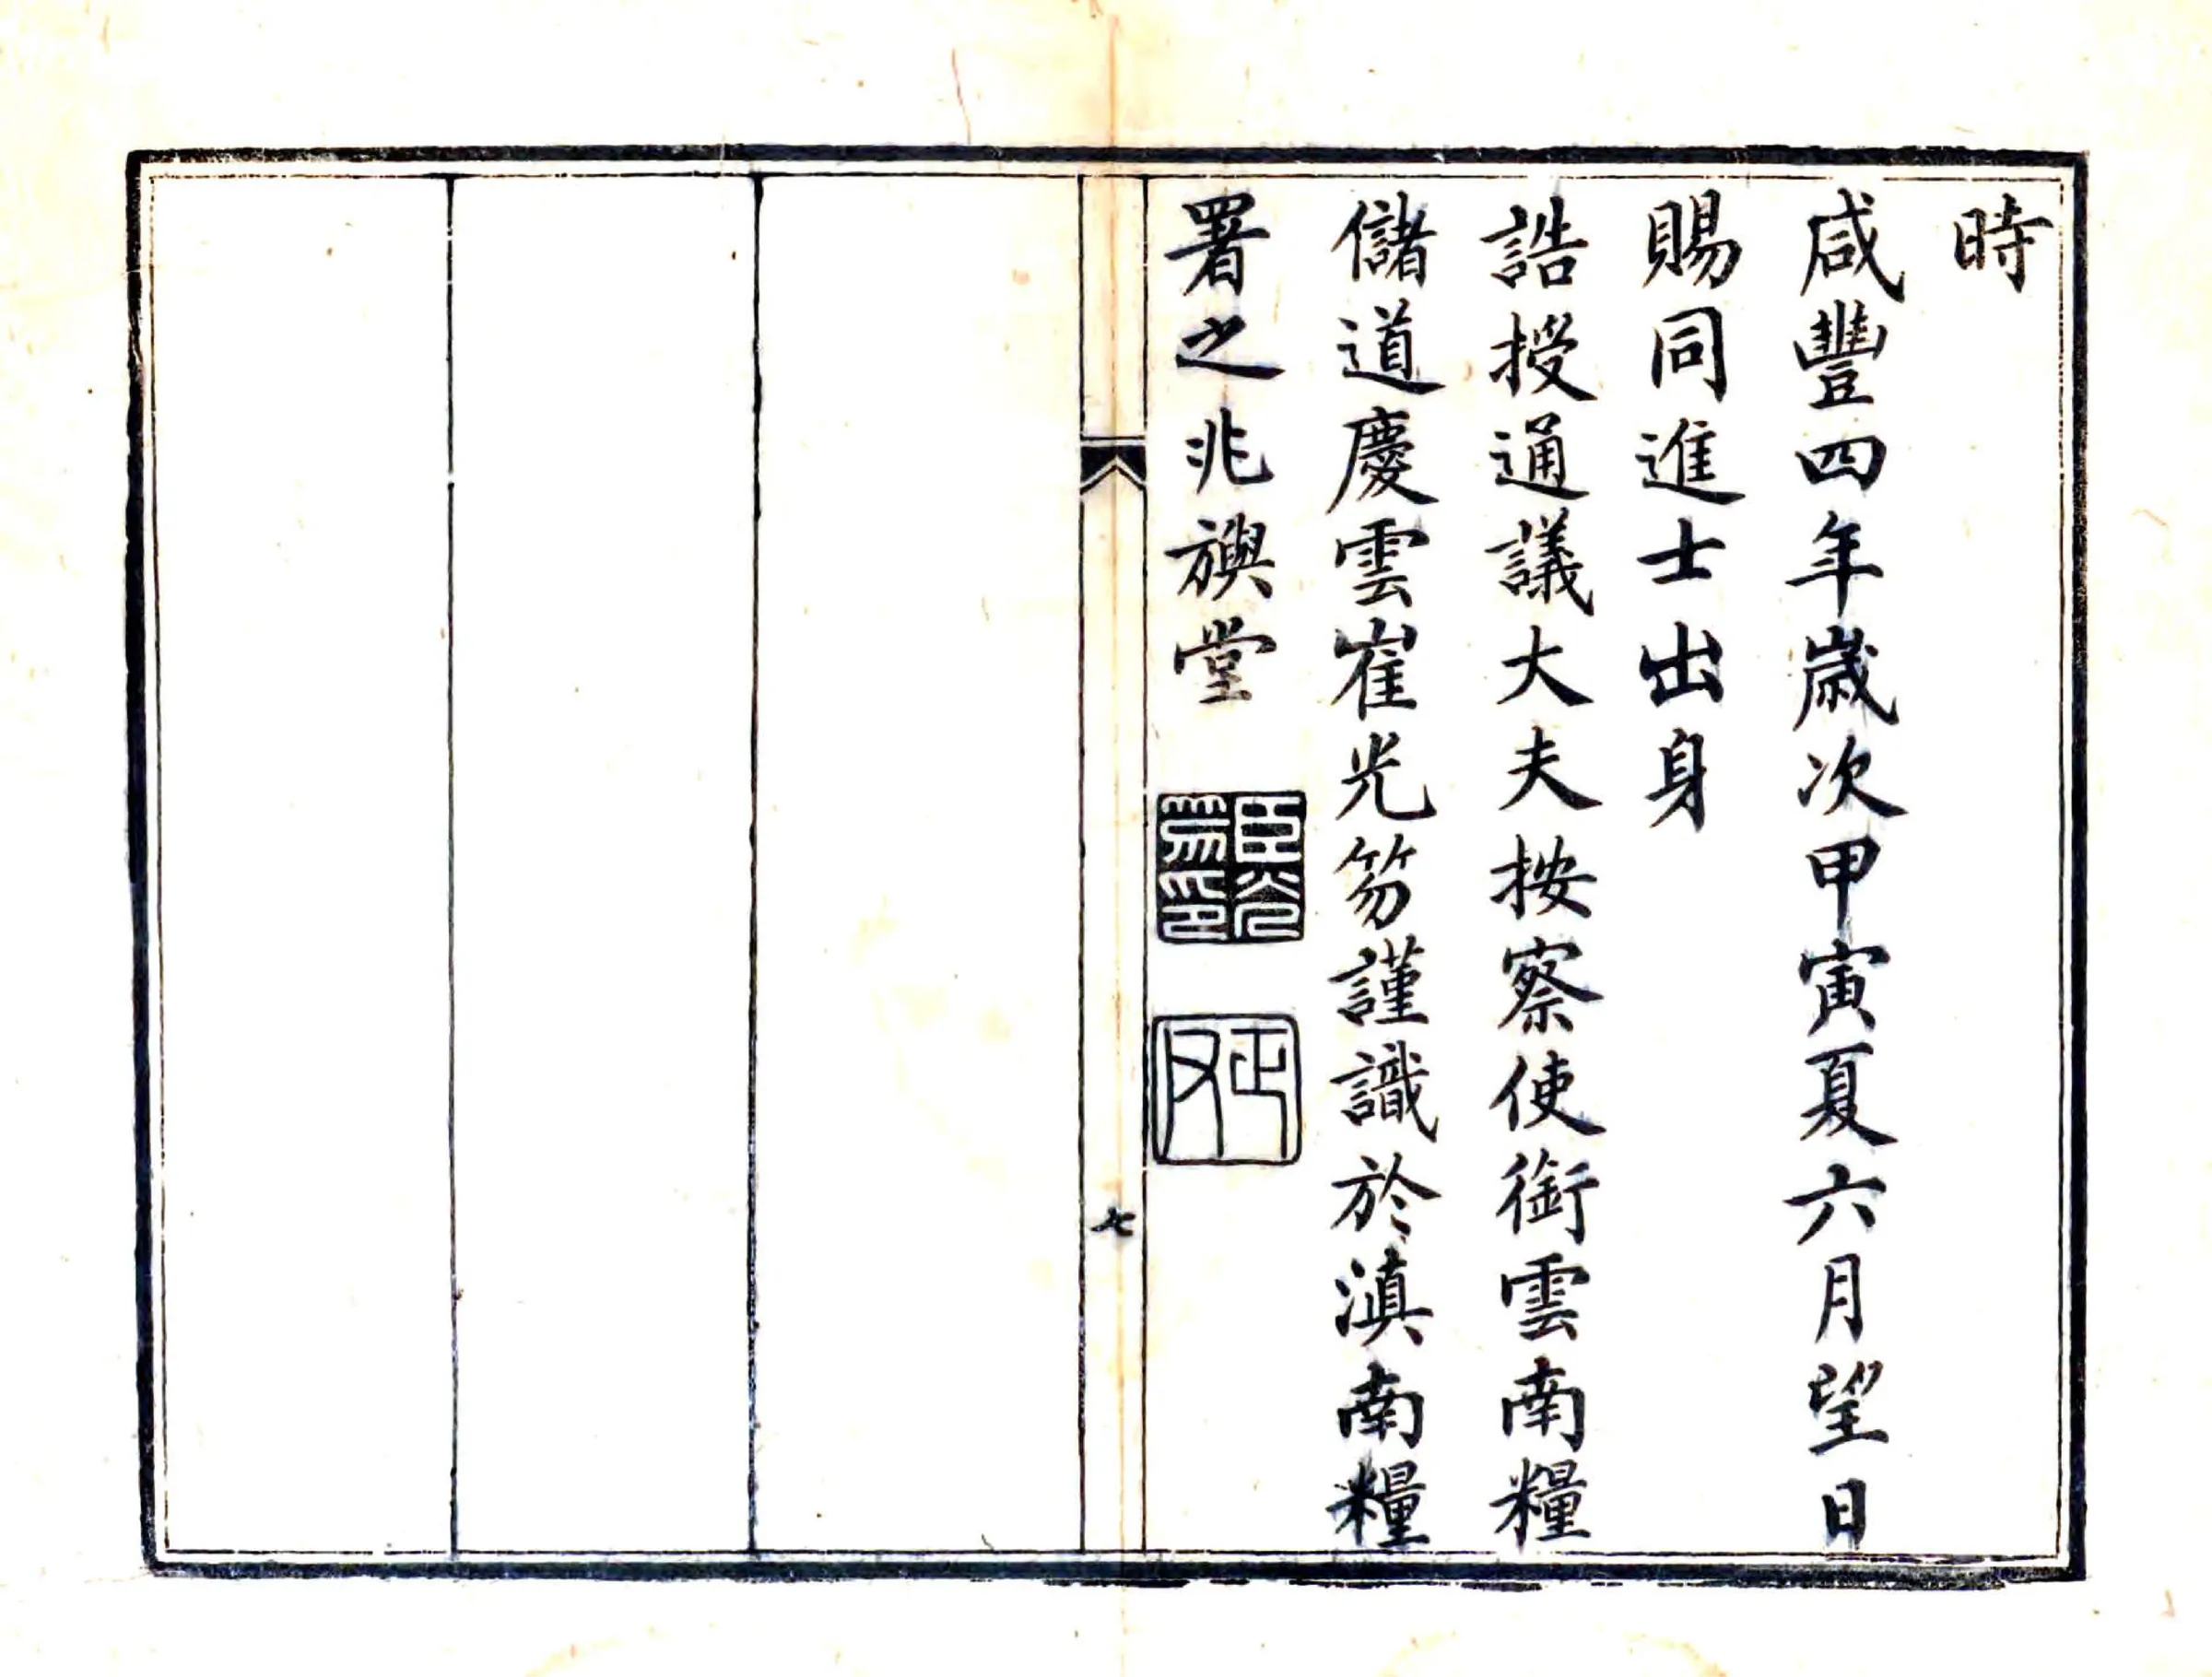 時
咸豐四年歲次甲寅夏六月望日
賜同進士出身
誥授通議大夫按察使銜雲南糧
儲道慶雲崔光笏謹識於滇南糧
署之兆旟堂
臣光笏印
七